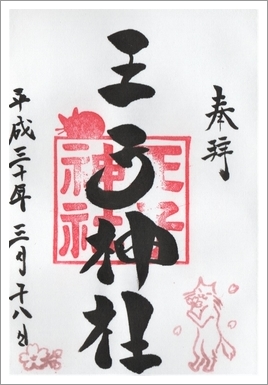 奉拝
王子神社
王子
神社
平成三十年 三月十八日